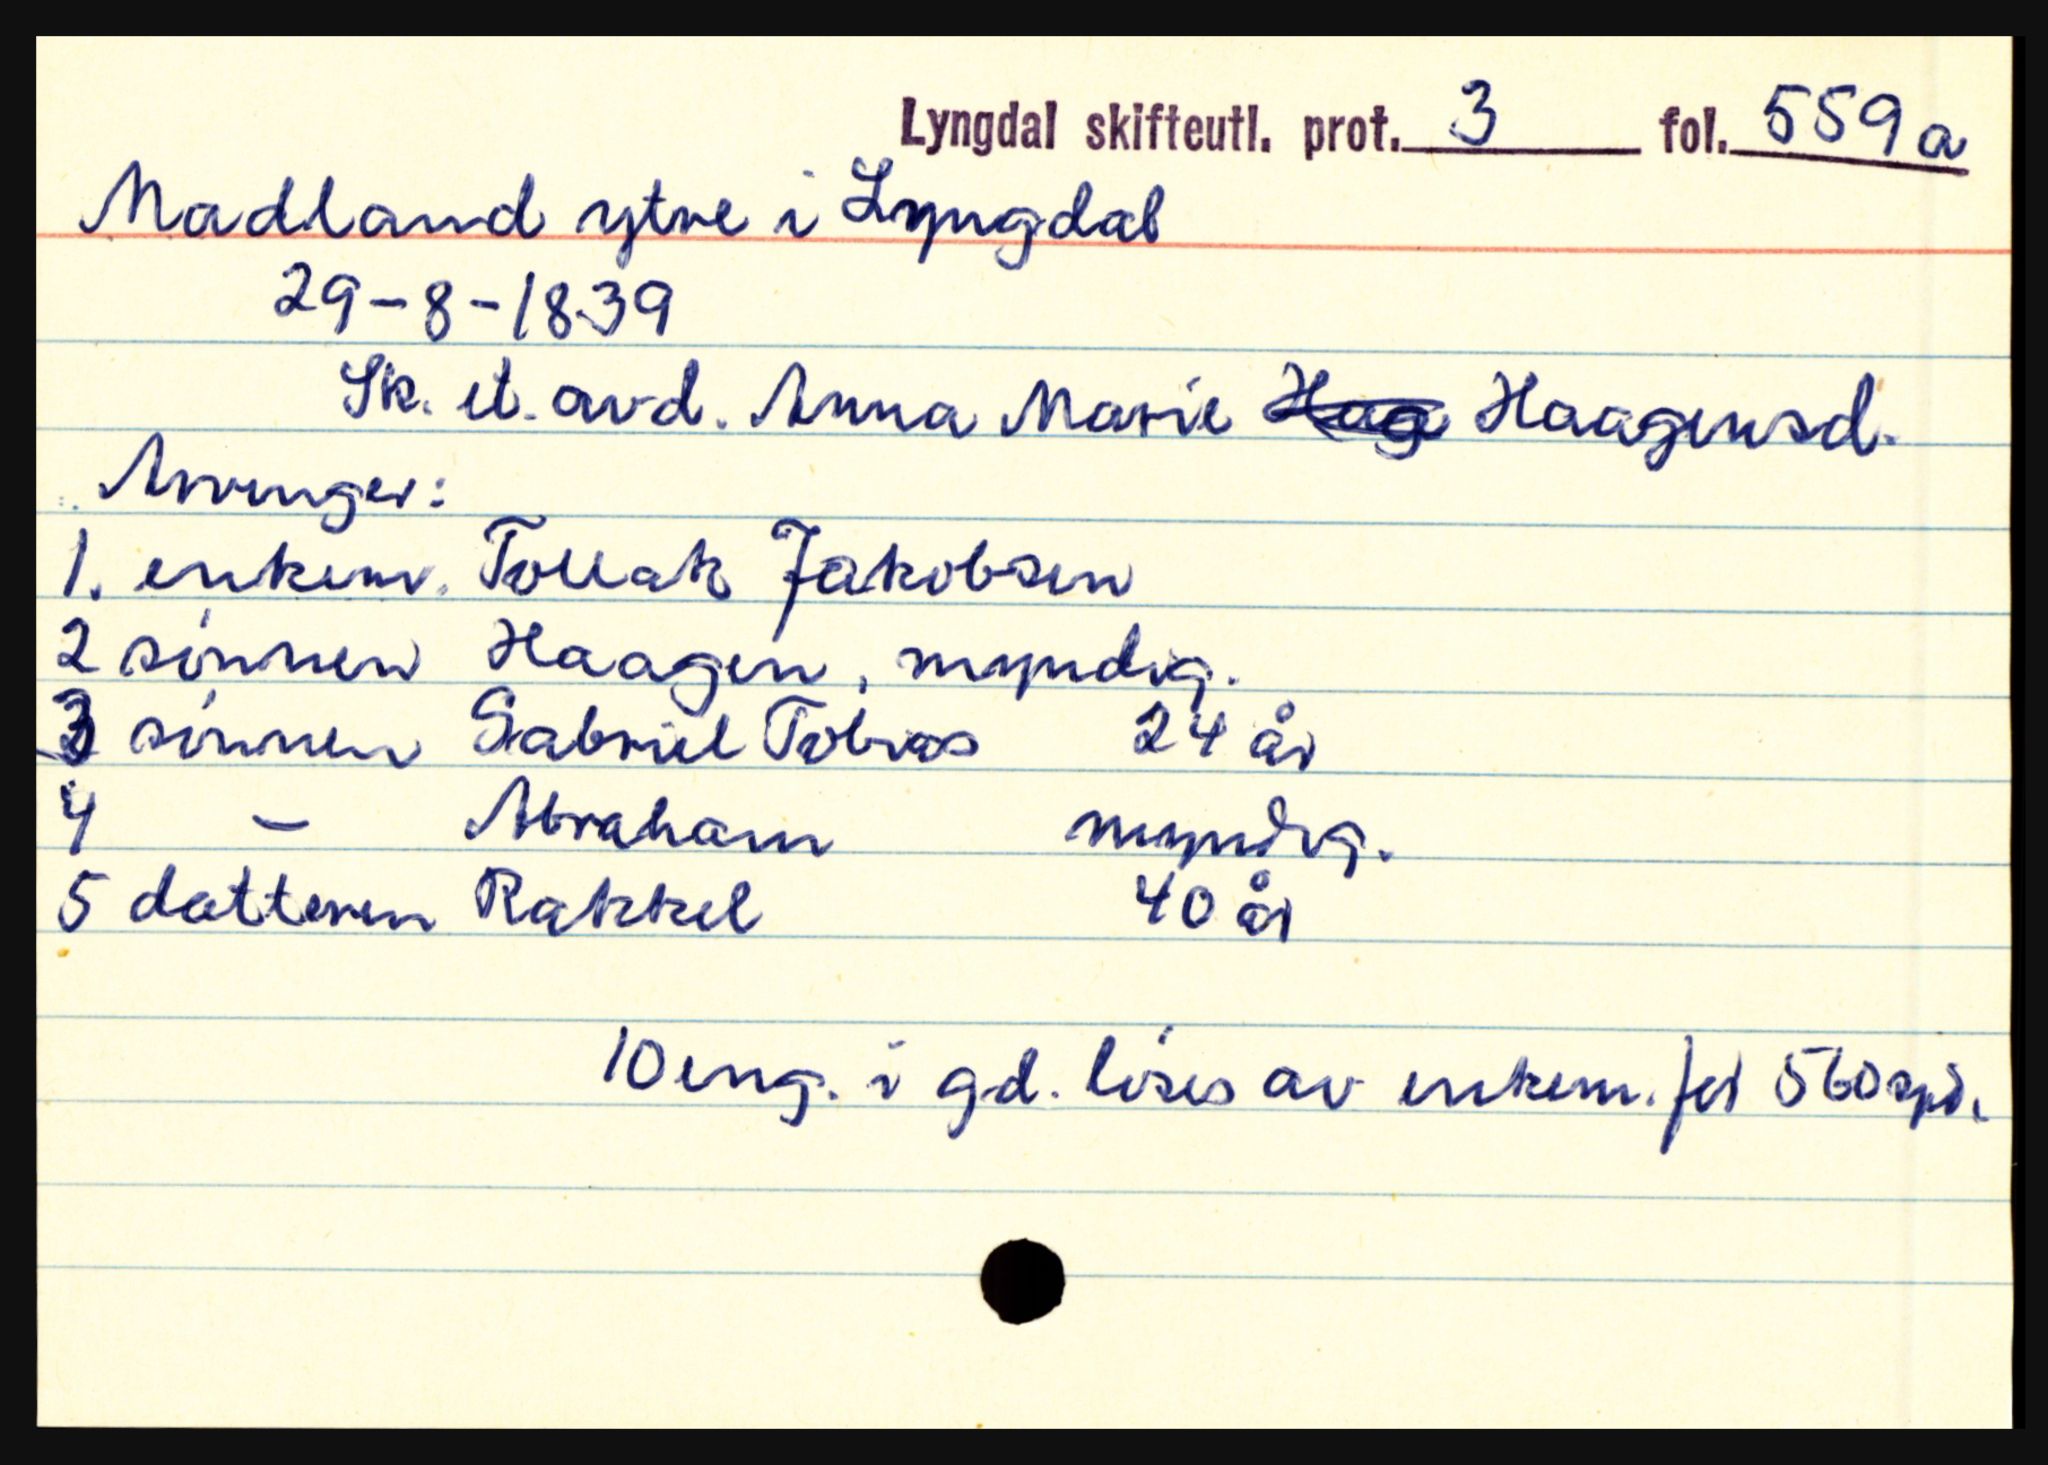 Lyngdal skifteutl. prot. 3 fol. 559 a
Madland ytre i Lyngdal
29-8-1839
Sk. et. avd. Anna Marie Hag Haagensd.
Arvinger:
1. enkem. Tollak Jakobsen
2 sønnen Haagen, myndig.
3 sønnen Gabriel Tobias 24 år
4 - Abraham myndig.
5 datteren Rakkel 40 år
10 eng. i gd. løses av enkem. for 560 spd.